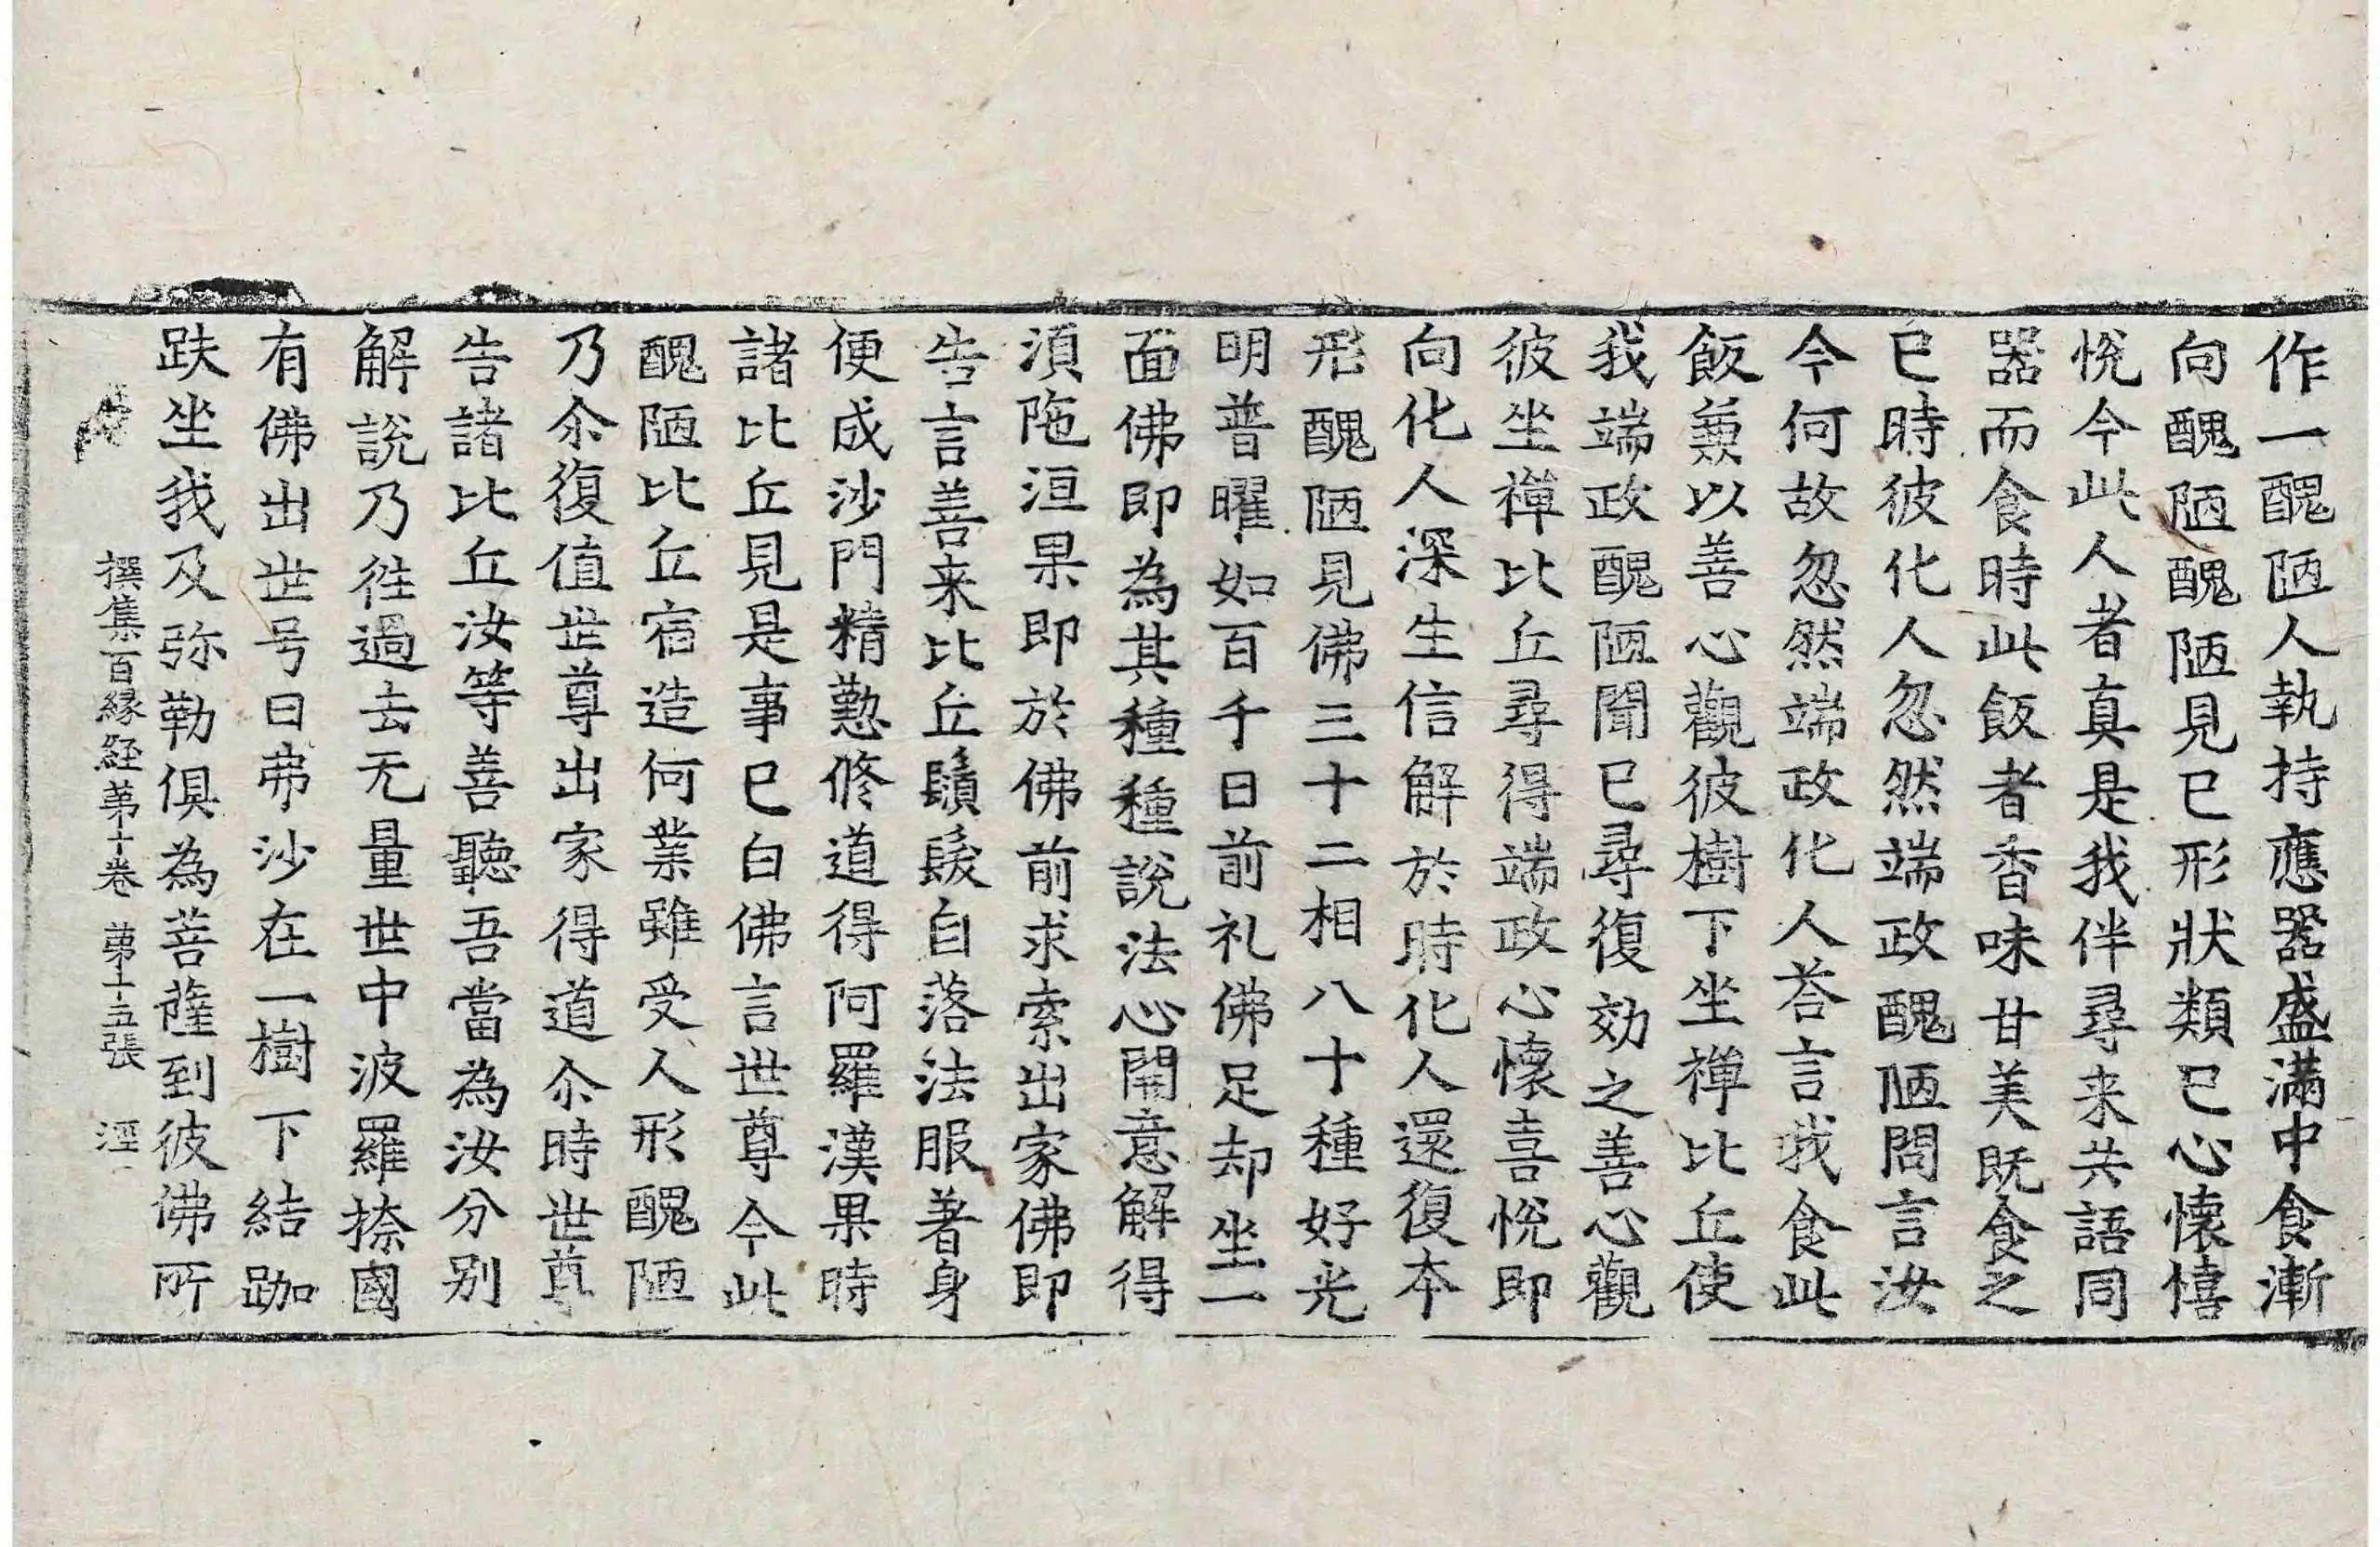 作一醜陋人執持應器盛滿中食漸
向醜陋醜陋見已形狀類已心懷憘
悅今此人者真是我伴尋来共語同
器而食時此飯者香味甘美既食之
已時彼化人忽然端政醜陋問言汝
今何故忽然端政化人荅言我食此
飯兼以善心觀彼樹下坐禅比丘使
我端政醜陋聞已尋復効之善心觀
彼坐禅比丘尋得端政心懷喜悅即
向化人深生信解於時化人還復本
形醜陋見佛三十二相八十種好光
明普曜如百千日前礼佛足却坐一
面佛即為其種種說法心開意解得
湏陁洹果即於佛前求索出家佛即
告言善来比丘鬚髮自落法服著身
便成沙門精懃修道得阿羅漢果時
諸比丘見是事已白佛言世尊今此
醜陋比丘宿造何業雖受人形醜陋
乃尒復值世尊出家得道尒時世尊
告諸比丘汝等善聽吾當為汝分別
解說乃往過去无量世中波羅捺國
有佛出世号曰弗沙在一樹下結跏
趺坐我及弥勒俱為菩薩到彼佛所
撰集百縁経第十卷 第十五張 涇